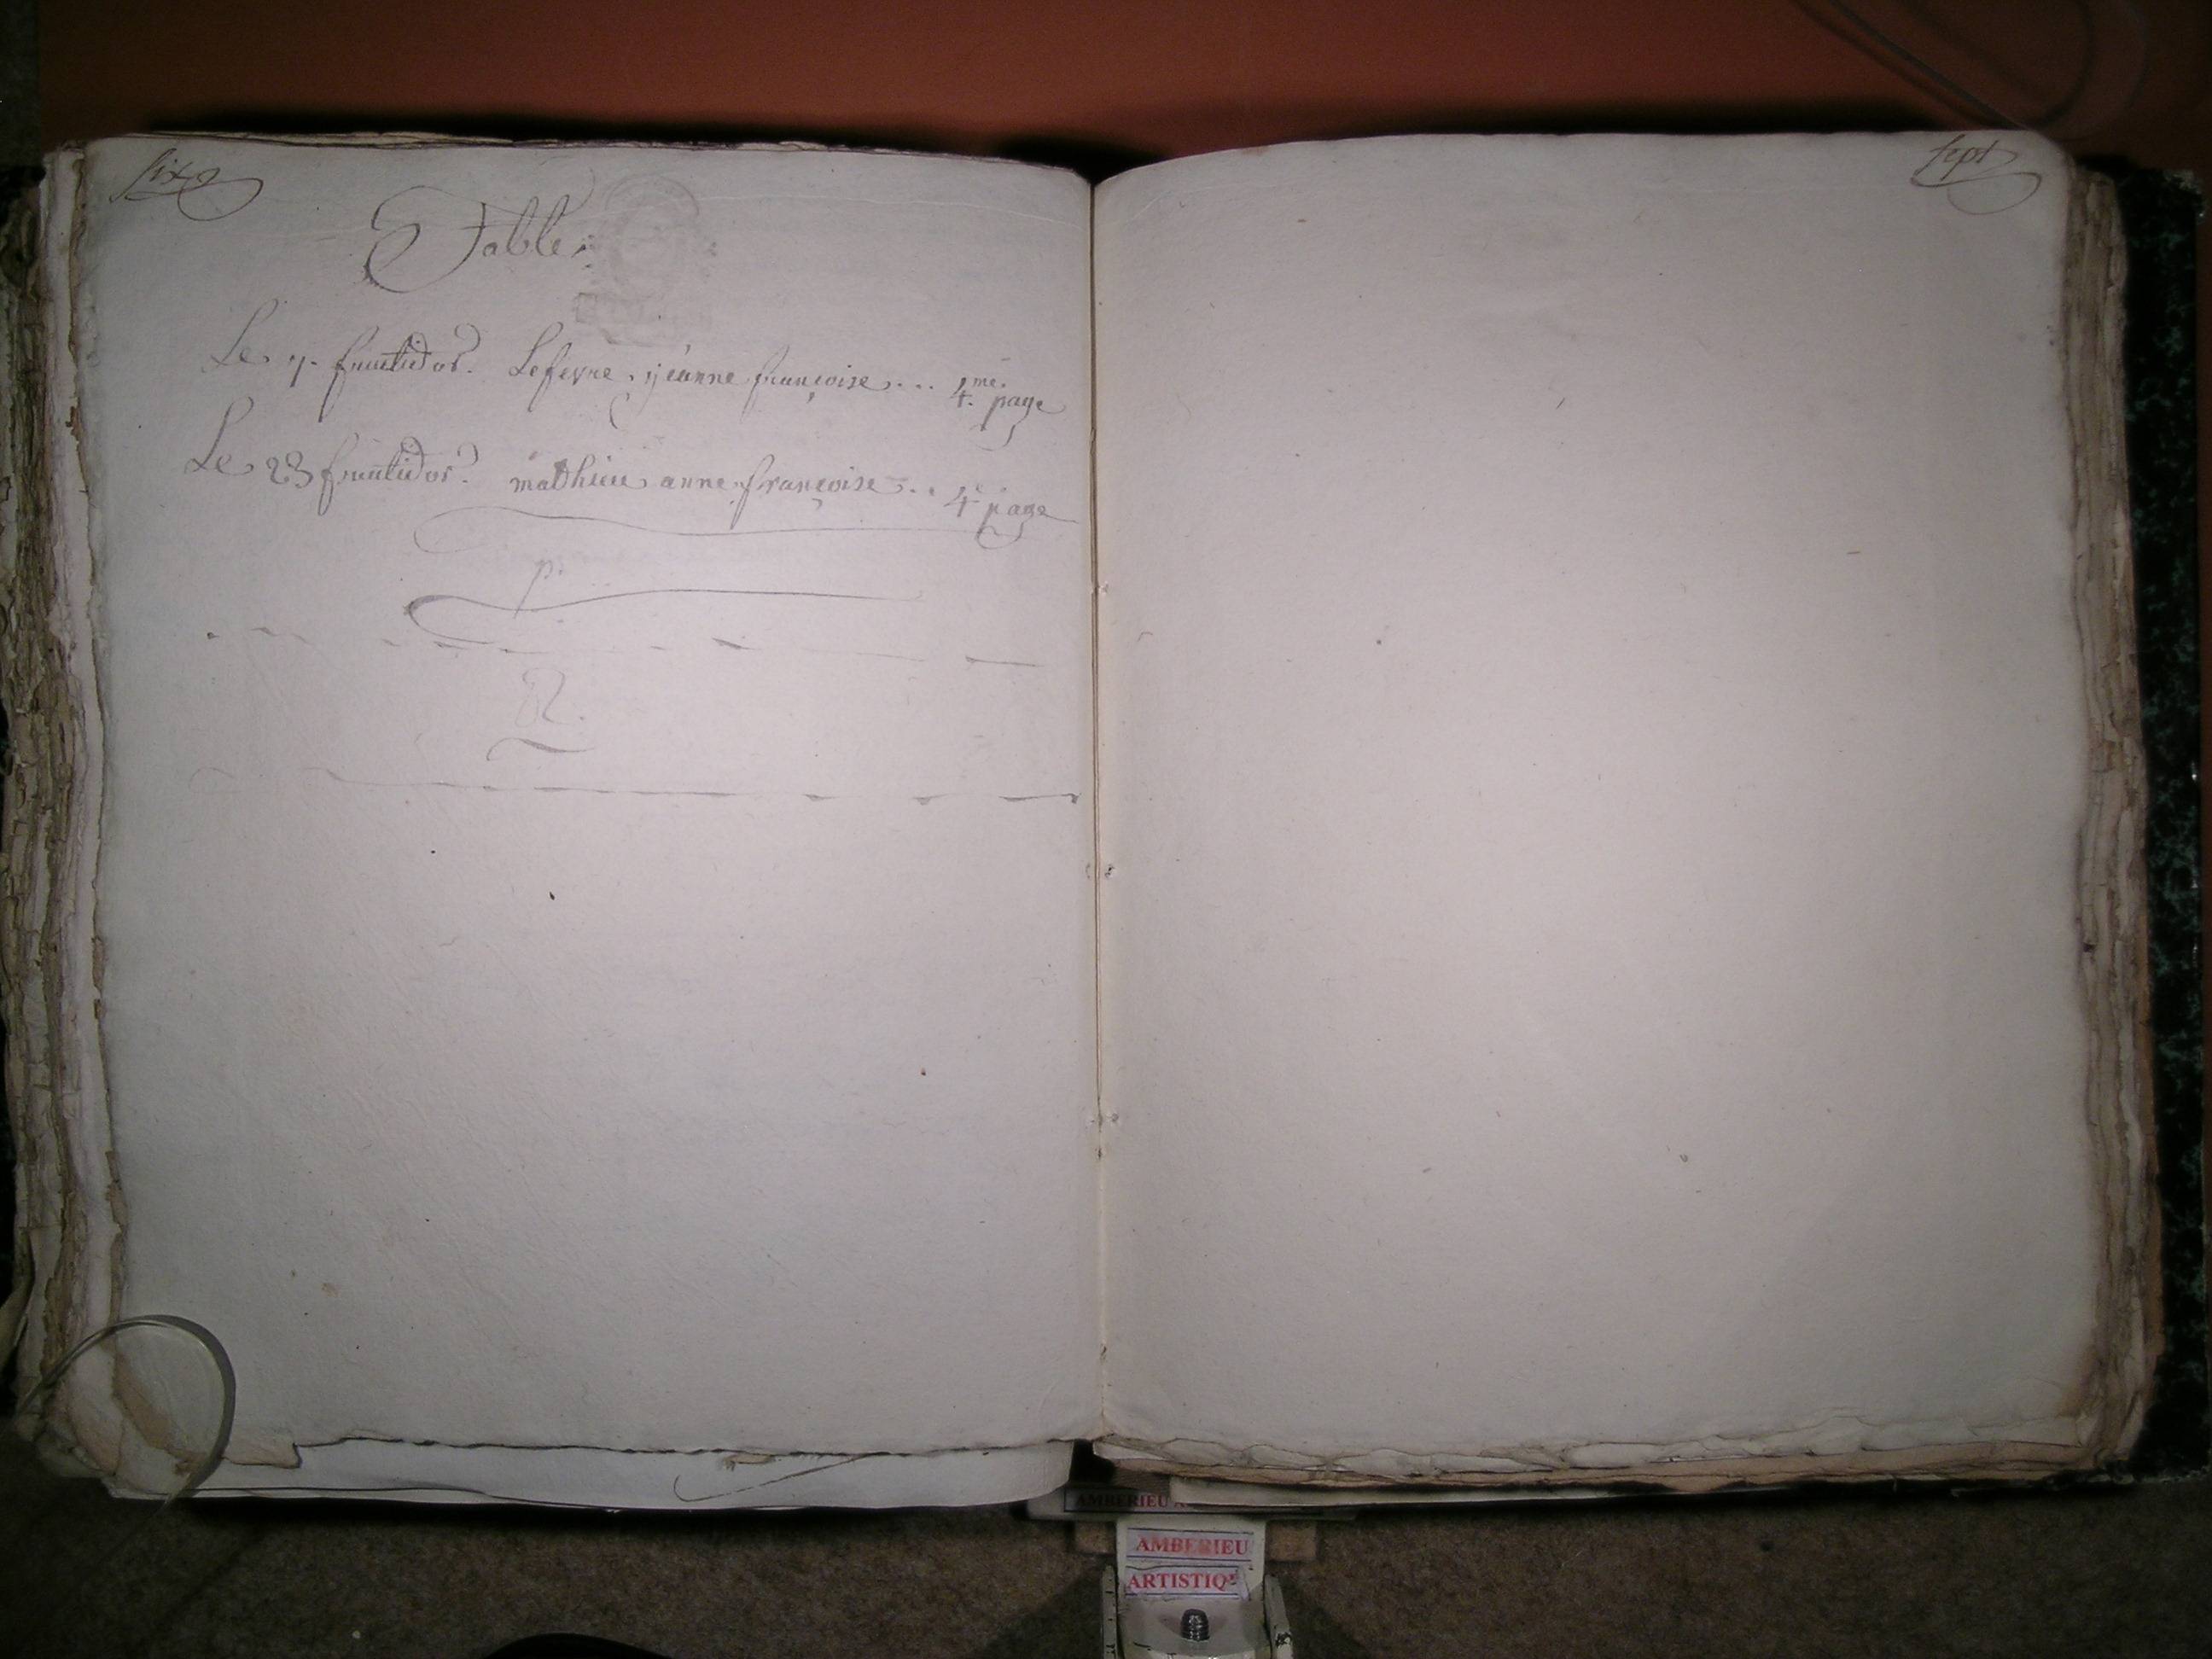 six
Table
Le 7. fructidor. Lefevre jeanne françoise ... 4.me page
Le 23 fructidor. mathieu anne françoise .. 4e page
sept
AMBERIEU
AMBERIEU
ARTISTIQ